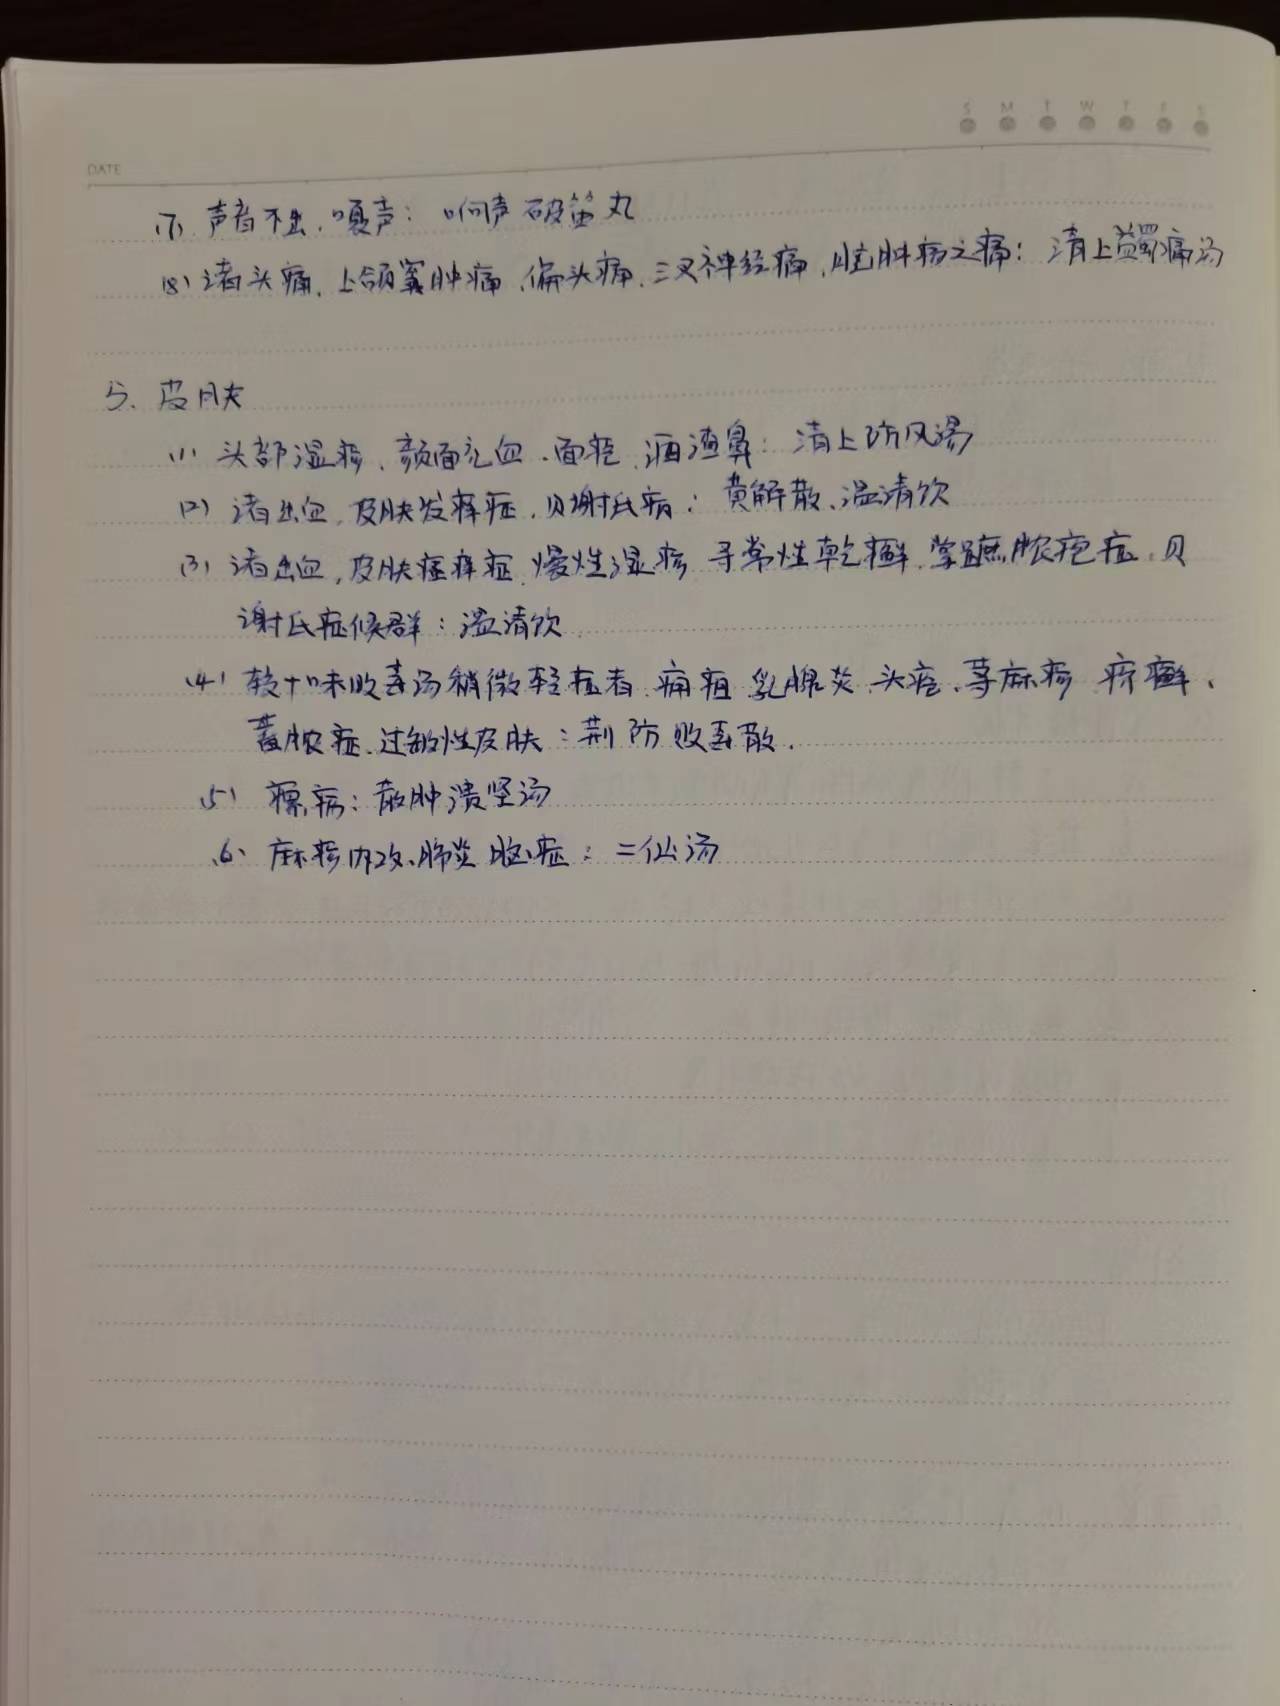 S M T W T F S
DATE
(7) 声音不出、嗄声：响声破笛丸
(8) 诸头痛、上颌窦肿痛、偏头痛、三叉神经痛、脑肿疡之痛：清上蠲痛汤
5. 皮肤
(1) 头部湿疹、颜面充血、面疱、酒渣鼻：清上防风汤
(2) 诸出血、皮肤发痒症、贝谢氏病：黄解散、温清饮
(3) 诸出血、皮肤瘙痒症、慢性湿疹 寻常性乾癣、掌蹠脓疱症、贝
谢氏症候群：温清饮
(4) 较十味败毒汤稍微轻症者、痈疽 乳腺炎、头疮、荨麻疹 疥癣、
蓄脓症、过敏性皮肤：荆防败毒散.
(5) 瘰疬：散肿溃坚汤
(6) 麻疹内攻、肺炎 脑症：二仙汤